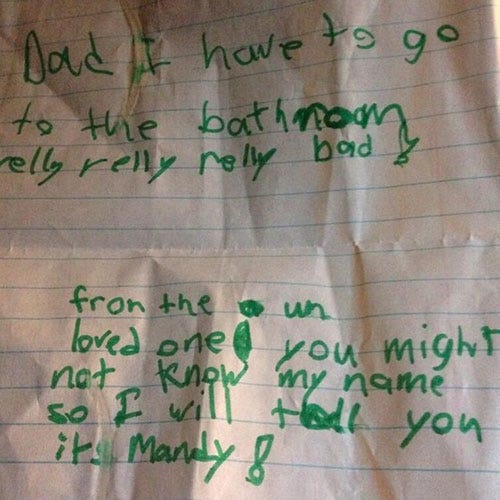 Dad I have to go
to the bathroom
relly relly relly bad!
fron the un
loved one! you might
not know my name
so I will tell you
its Mandy!